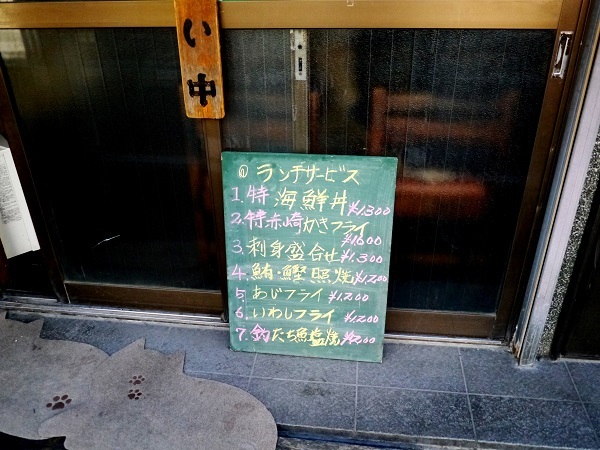 い中
@ ランチサービス
1. 特 海鮮丼 ¥1.300
2. 特赤崎かきフライ
¥1.600
3. 刺身盛合せ ¥1.300
4. 鮪・鰹照焼 ¥1,200
5. あじフライ ¥1.200
6. いわしフライ ¥1.200
7. 釣たち魚塩焼 ¥1,200